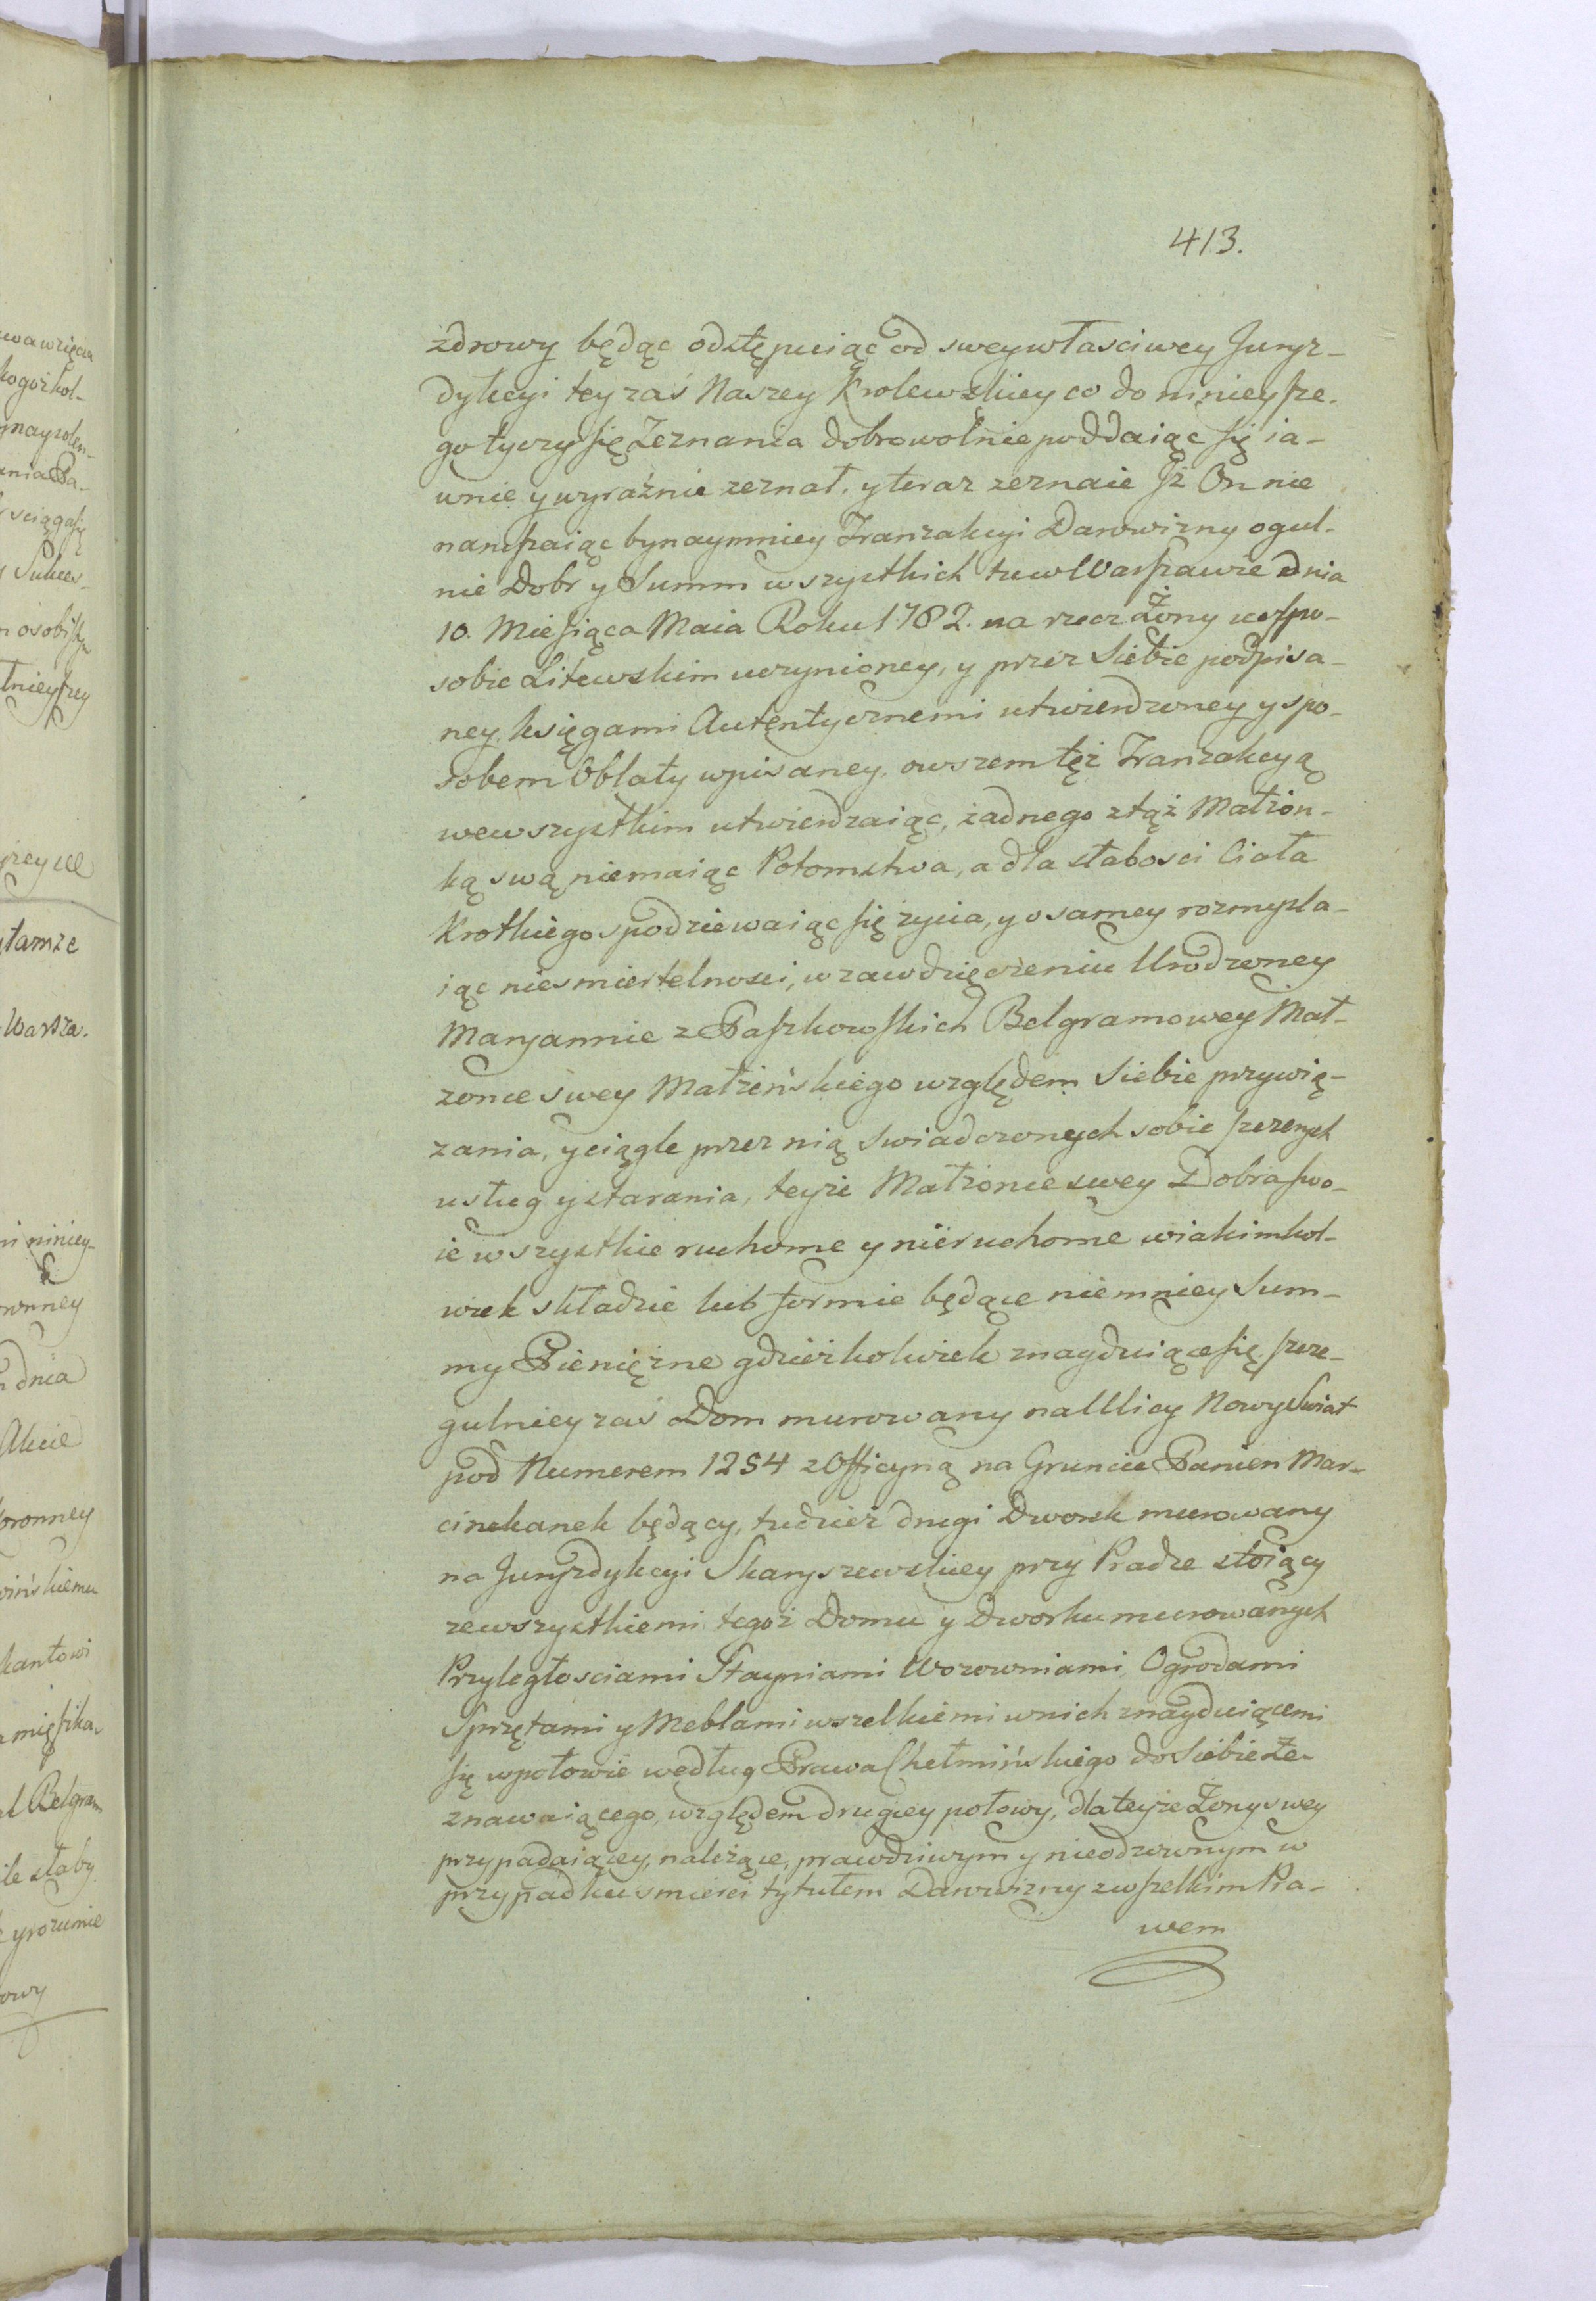 413.
zdrowy będąc odstępuiąc od swey własciwey Juryz-
dykcyi tey zaś Naszey Krolewskiey co do ninieysze-
go tyczy się Zeznania dobrowolnie poddaiąc się ia-
wnie y wyraźnie zeznał, y teraz zeznaie Jż On nie
naruszaiąc bynaymniey Tranzakcyi Darowizny ogul-
nie Dobr y Summ wszystkich tu w Warszawie dnia
10. Miesiąca Maia Roku 1782. na rzecz Żony w spo-
sobie Litewskim uczynioney, y przez Siebie podpisa-
ney, księgami Autentycznemi utwierdzoney y spo-
sobem Oblaty wpisaney, owszem tęż Tranzakcyą
wewszystkim utwierdzaiąc, żadnego z tąż Małżon-
ką swą niemaiąc Potomstwa, a dla słabosci Ciała
Krotkiego spodziewaiąc się życia, y o samey rozmysla-
iąc niesmiertelnosci, w zawdzięczeniu Urodzoney
Maryannie z Paszkowskich Belgramowey Mał-
zonce swey Małżeńskiego względem Siebie przywią-
zania, y ciągle przez nią swiadczonych sobie szczerych
usług y starania, teyże Małżonce swey Dobra swo-
ie wszystkie ruchome y nieruchome w iakimkol-
wiek składzie lub formie będące niemniey Sum-
my Pieniężne gdzieżkolwiek znayduiące się, szcze-
gulniey zaś Dom murowany na Ulicy Nowy Swiat
pod Numerem 1254 z Officyną na Gruncie Panien Mar-
cinkanek będący, tudzież drugi Dworek murowany
na Juryzdykcyi Skaryszewskiey przy Pradze stoiący
zewszystkiemi tegoż Domu y Dworku murowanych
Przyległosciami Stayniami Wozowniami, Ogrodami
Sprzętami y Meblami wszelkiemi w nich znayduiącemi
się w połowie według Prawa Chełmińskiego do Siebie Ze-
znawaiącego, względem drugiey połowy, dla teyże Żony swey
przypadaiącey, należące, prawdziwym y nieodzownym w
przypadku smierci tytułem Darowizny z wszelkim Pra-
wem